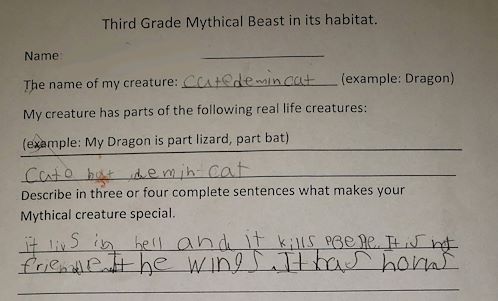 Third Grade Mythical Beast in its habitat.
Name:
The name of my creature: catedemincat (example: Dragon)
My creature has parts of the following real life creatures:
(example: My Dragon is part lizard, part bat)
Cato bat demin-cat
Describe in three or four complete sentences what makes your
Mythical creature special.
it livs in hell and it kills PEEPle. It is not
friendle It he wings. It has horns